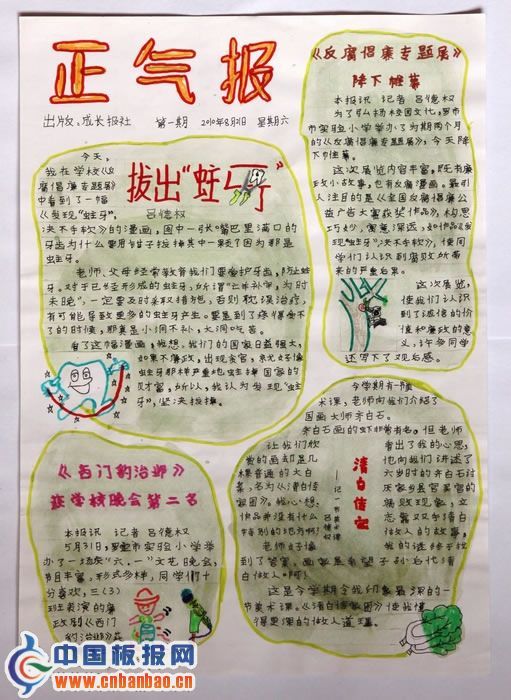 正气报
出版:成长报社 第一期 2010年8月21日 星期六
拔出“蛀牙”
吕德权
今天,
我在学校《反
腐倡廉专题展》
中看到了一幅
《发现“蛀牙”,
决不手软》的漫画,图中一张嘴巴里满口的
牙齿为什么要用钳子拔掉其中一颗?因为那是
蛀牙。
老师、父母经常教育我们要爱护牙齿,防止蛀
牙。对于已经形成的蛀牙,所谓“亡羊补牢,为时
未晚”,一定要及时采取措施,否则耽误治疗,
有可能导致更多的蛀牙产生。要是到了疼得受不
了的时候,那真是小洞不补,大洞吃苦。
看了这幅漫画,我想,我们的国家日益强大,
如果不廉政,出现贪官,就好像
蛀牙那样严重地蛀掉国家的
财富,所以,我认为发现“蛀
牙”,坚决拔掉。
《反腐倡廉专题展》
降下帷幕
本报讯 记者 吕德权
为了弘扬校园文化,罗
市实验小学举办了为期两个月
的《反腐倡廉专题展》,今天降
下帷幕。
这次展览内容丰富,既有廉
政小故事,也有反腐漫画。最引
人注目的是《全国反腐倡廉公
益广告大赛获奖作品》,构思
巧妙,寓意深远,如作品《发
现“蛀牙”,决不手软》,使同
学们认识到腐败所带
来的严重后果。
这次展览,
使我们认识到
了诚信的价
值和廉政的意
义,许多同学
还写下了观后感。
《西门豹治邺》
获学校晚会第二名
本报讯 记者 吕德权
5月31日,罗市实验小学举
办了一场庆“六.一”文艺晚会,
节目丰富,形式多样,同学们十
分喜欢,三(3)
班表演的廉
政剧《西门
豹治邺》获
清白传家
——记一节美术课
吕德权
今学期有一节美
术课,老师向我们介绍了
国画大师齐白石。
齐白石画的虾非常有名。但老师
让我们欣
赏的画却是几
棵普通的大白
菜,名为《清白传
家图》。我心想:
作品并没有什么
特别的地方啊!
老师好像
看出了我的心思,
也向我们讲述了
六岁时的齐白石讨
厌家乡县官的
腐败现象,立
志要以清白
做人的故事,
我的谜终于找
到了答案,画家是希望子孙后代清
白做人啊!
这是今学期令我印象最深的一
节美术课,《清白传家图》使我懂
得更深的做人道理。
中国板报网
www.cnbanbao.cn